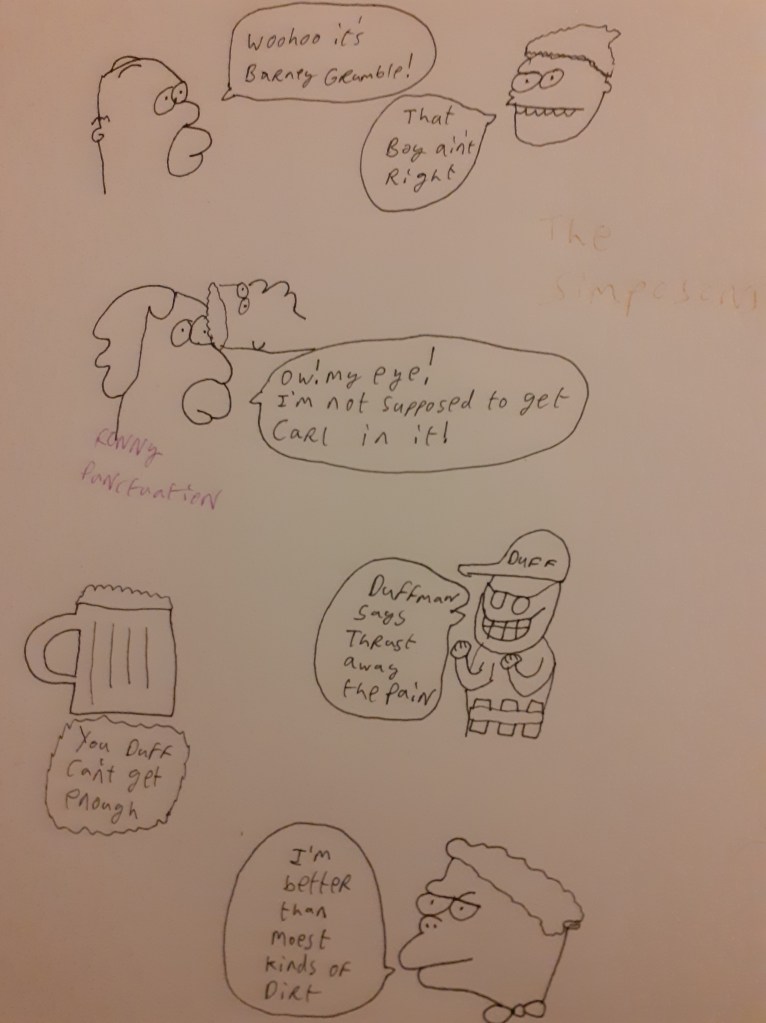 Woohoo it's
Barney Grumble!
That
Boy ain't
Right
The
Simposent
ow! my eye!
I'm not supposed to get
Carl in it!
RONNY
Punctuation
DUFF
Duffman
says
Thrust
away
the pain
You Duff
Can't get
enough
I'm
better
than
moest
kinds of
Dirt